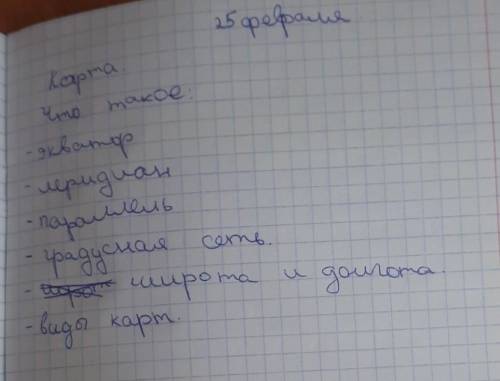 25 февраля
Карта.
Что такое:
- экватор
- меридиан
- параллель
- градусная сеть.
- широта и долгота.
- виды карт.